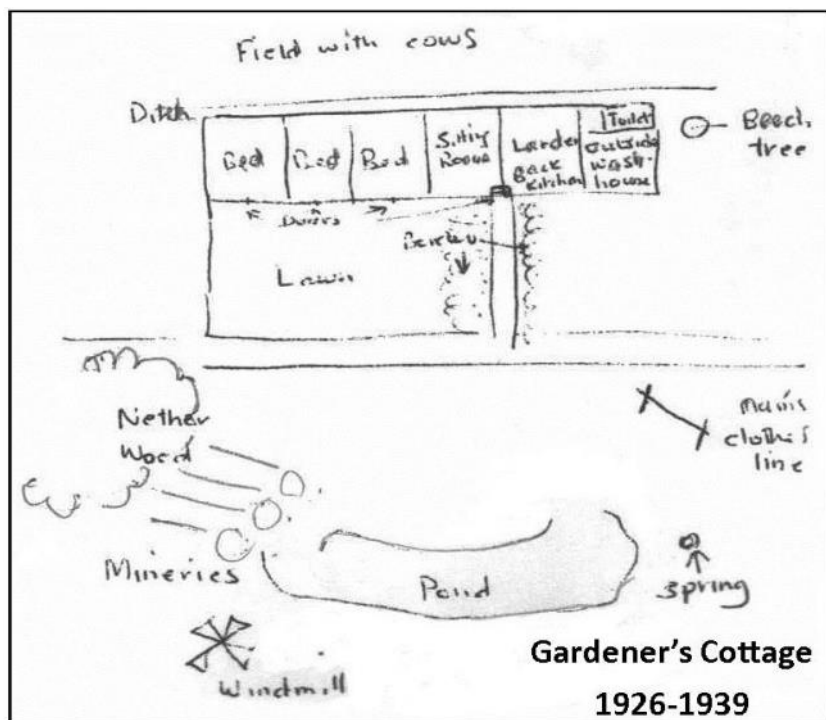 Field with cows
Ditch
Bed
Bed
Bed
Sitting
Room
Larder
Back
Kitchen
Toilet
outside
wash-
house
Beech
tree
Doors
Lawn
Nether
Wood
Mum's
clothes
line
Mineries
Pond
Spring
Windmill
Gardener's Cottage
1926-1939